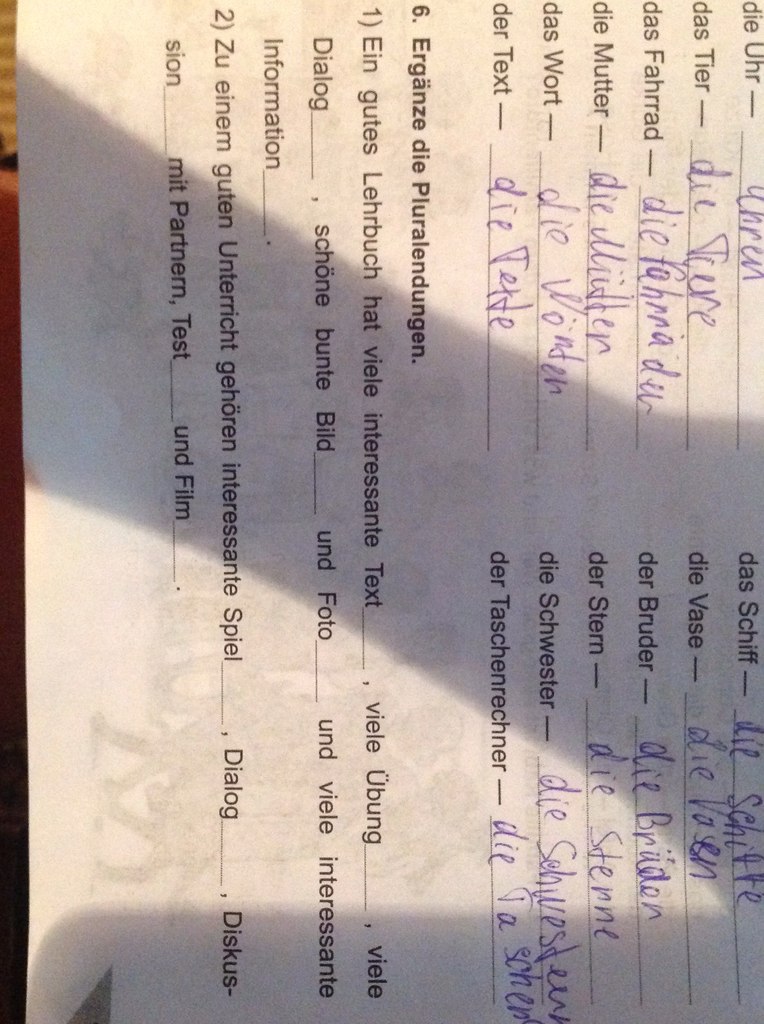 die Uhr — Uhren
das Tier — die Tiere
das Fahrrad — die Fahrräder
die Mutter — die Mütter
das Wort — die Wörter
der Text — die Texte
das Schiff — die Schiffe
die Vase — die Vasen
der Bruder — die Brüder
der Stern — die Sterne
die Schwester — die Schwestern
der Taschenrechner — die Taschen
6. Ergänze die Pluralendungen.
1) Ein gutes Lehrbuch hat viele interessante Text____, viele Übung____, viele
Dialog____, schöne bunte Bild____ und Foto____ und viele interessante
Information____.
2) Zu einem guten Unterricht gehören interessante Spiel____, Dialog____, Diskus-
sion____ mit Partnern, Test____ und Film____.